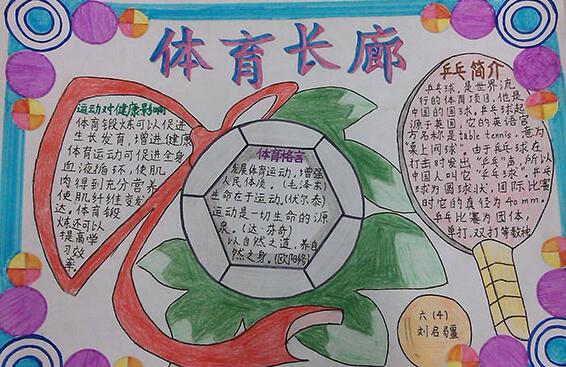 体育长廊
运动对健康影响
体育锻炼可以促进
生长发育，增进健康
体育运动可促进全身
血液循环，使肌
肉得到充分营养
使肌纤维变发
达。体育锻
炼还可以
提高学
习效
率。
体育格言
发展体育运动，增强
人民体质。（毛泽东）
生命在于运动。（伏尔泰）
运动是一切生命的源
泉。（达·芬奇）
以自然之道，养自
然之身。（欧阳修）
乒乓简介
乒乓球，是世界流
行的体育项目，他是
中国的国球，乒乓球起
源于英国，它的英语官
方名称是table tennis，意为
桌上网球”。由于乒乓球在
打击时发出“乒乓”声，所以
中国人叫它“乒乓球”。乒乓
球为圆球状，国际比赛
时它的直径为40mm。
乒乓比赛为团体，
单打、双打等数种
六（4）
刘启疆